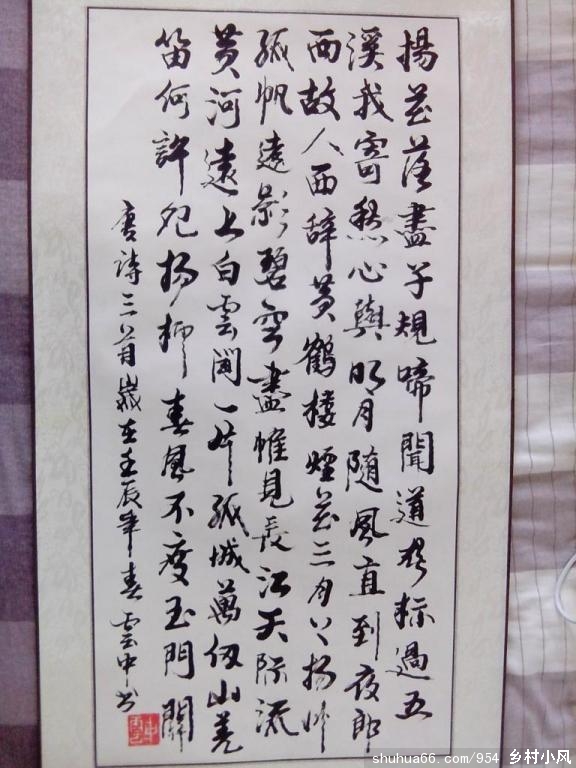 揚花落盡子規啼聞道龍標過五
溪我寄愁心與明月隨風直到夜郎
西故人西辭黃鶴樓煙花三月下揚州
孤帆遠影碧空盡惟見長江天際流
黃河遠上白雲間一片孤城萬仞山羌
笛何許怨楊柳春風不度玉門關
唐詩三首歲在壬辰年春雲中書
shuhua66.com/954 乡村小风